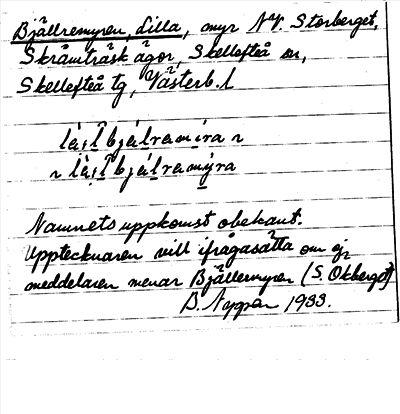 Bjällremyren, Lilla, myr N.V. Storberget,
Skråmträsk ägor, Skellefteå sn,
Skellefteå tg, Västerb. l
Namnets uppkomst obekant.
Upptecknaren vill ifrågasätta om ej
meddelaren menar Bjällermyren (S. Okberget)
B. Nygren 1933.